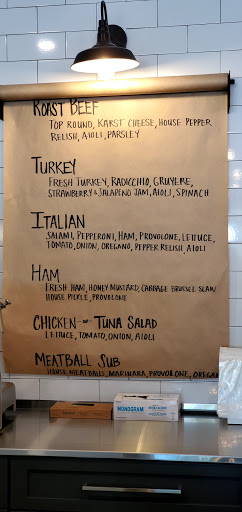 ROAST BEEF
TOP ROUND, KARST CHEESE, HOUSE PEPPER
RELISH, AIOLI, PARSLEY
TURKEY
FRESH TURKEY, RADICCHIO, GRUYERE,
STRAWBERRY & JALAPENO JAM, AIOLI, SPINACH
ITALIAN
SALAMI, PEPPERONI, HAM, PROVOLONE, LETTUCE,
TOMATO, ONION, OREGANO, PEPPER RELISH, AIOLI
HAM
FRESH HAM, HONEY MUSTARD, CABBAGE BRUSSEL SLAW
HOUSE PICKLE, PROVOLONE
CHICKEN OR TUNA SALAD
LETTUCE, TOMATO, ONION, AIOLI
MEATBALL SUB
HOUSE MEATBALLS, MARINARA, PROVOLONE, OREGANO
MONOGRAM